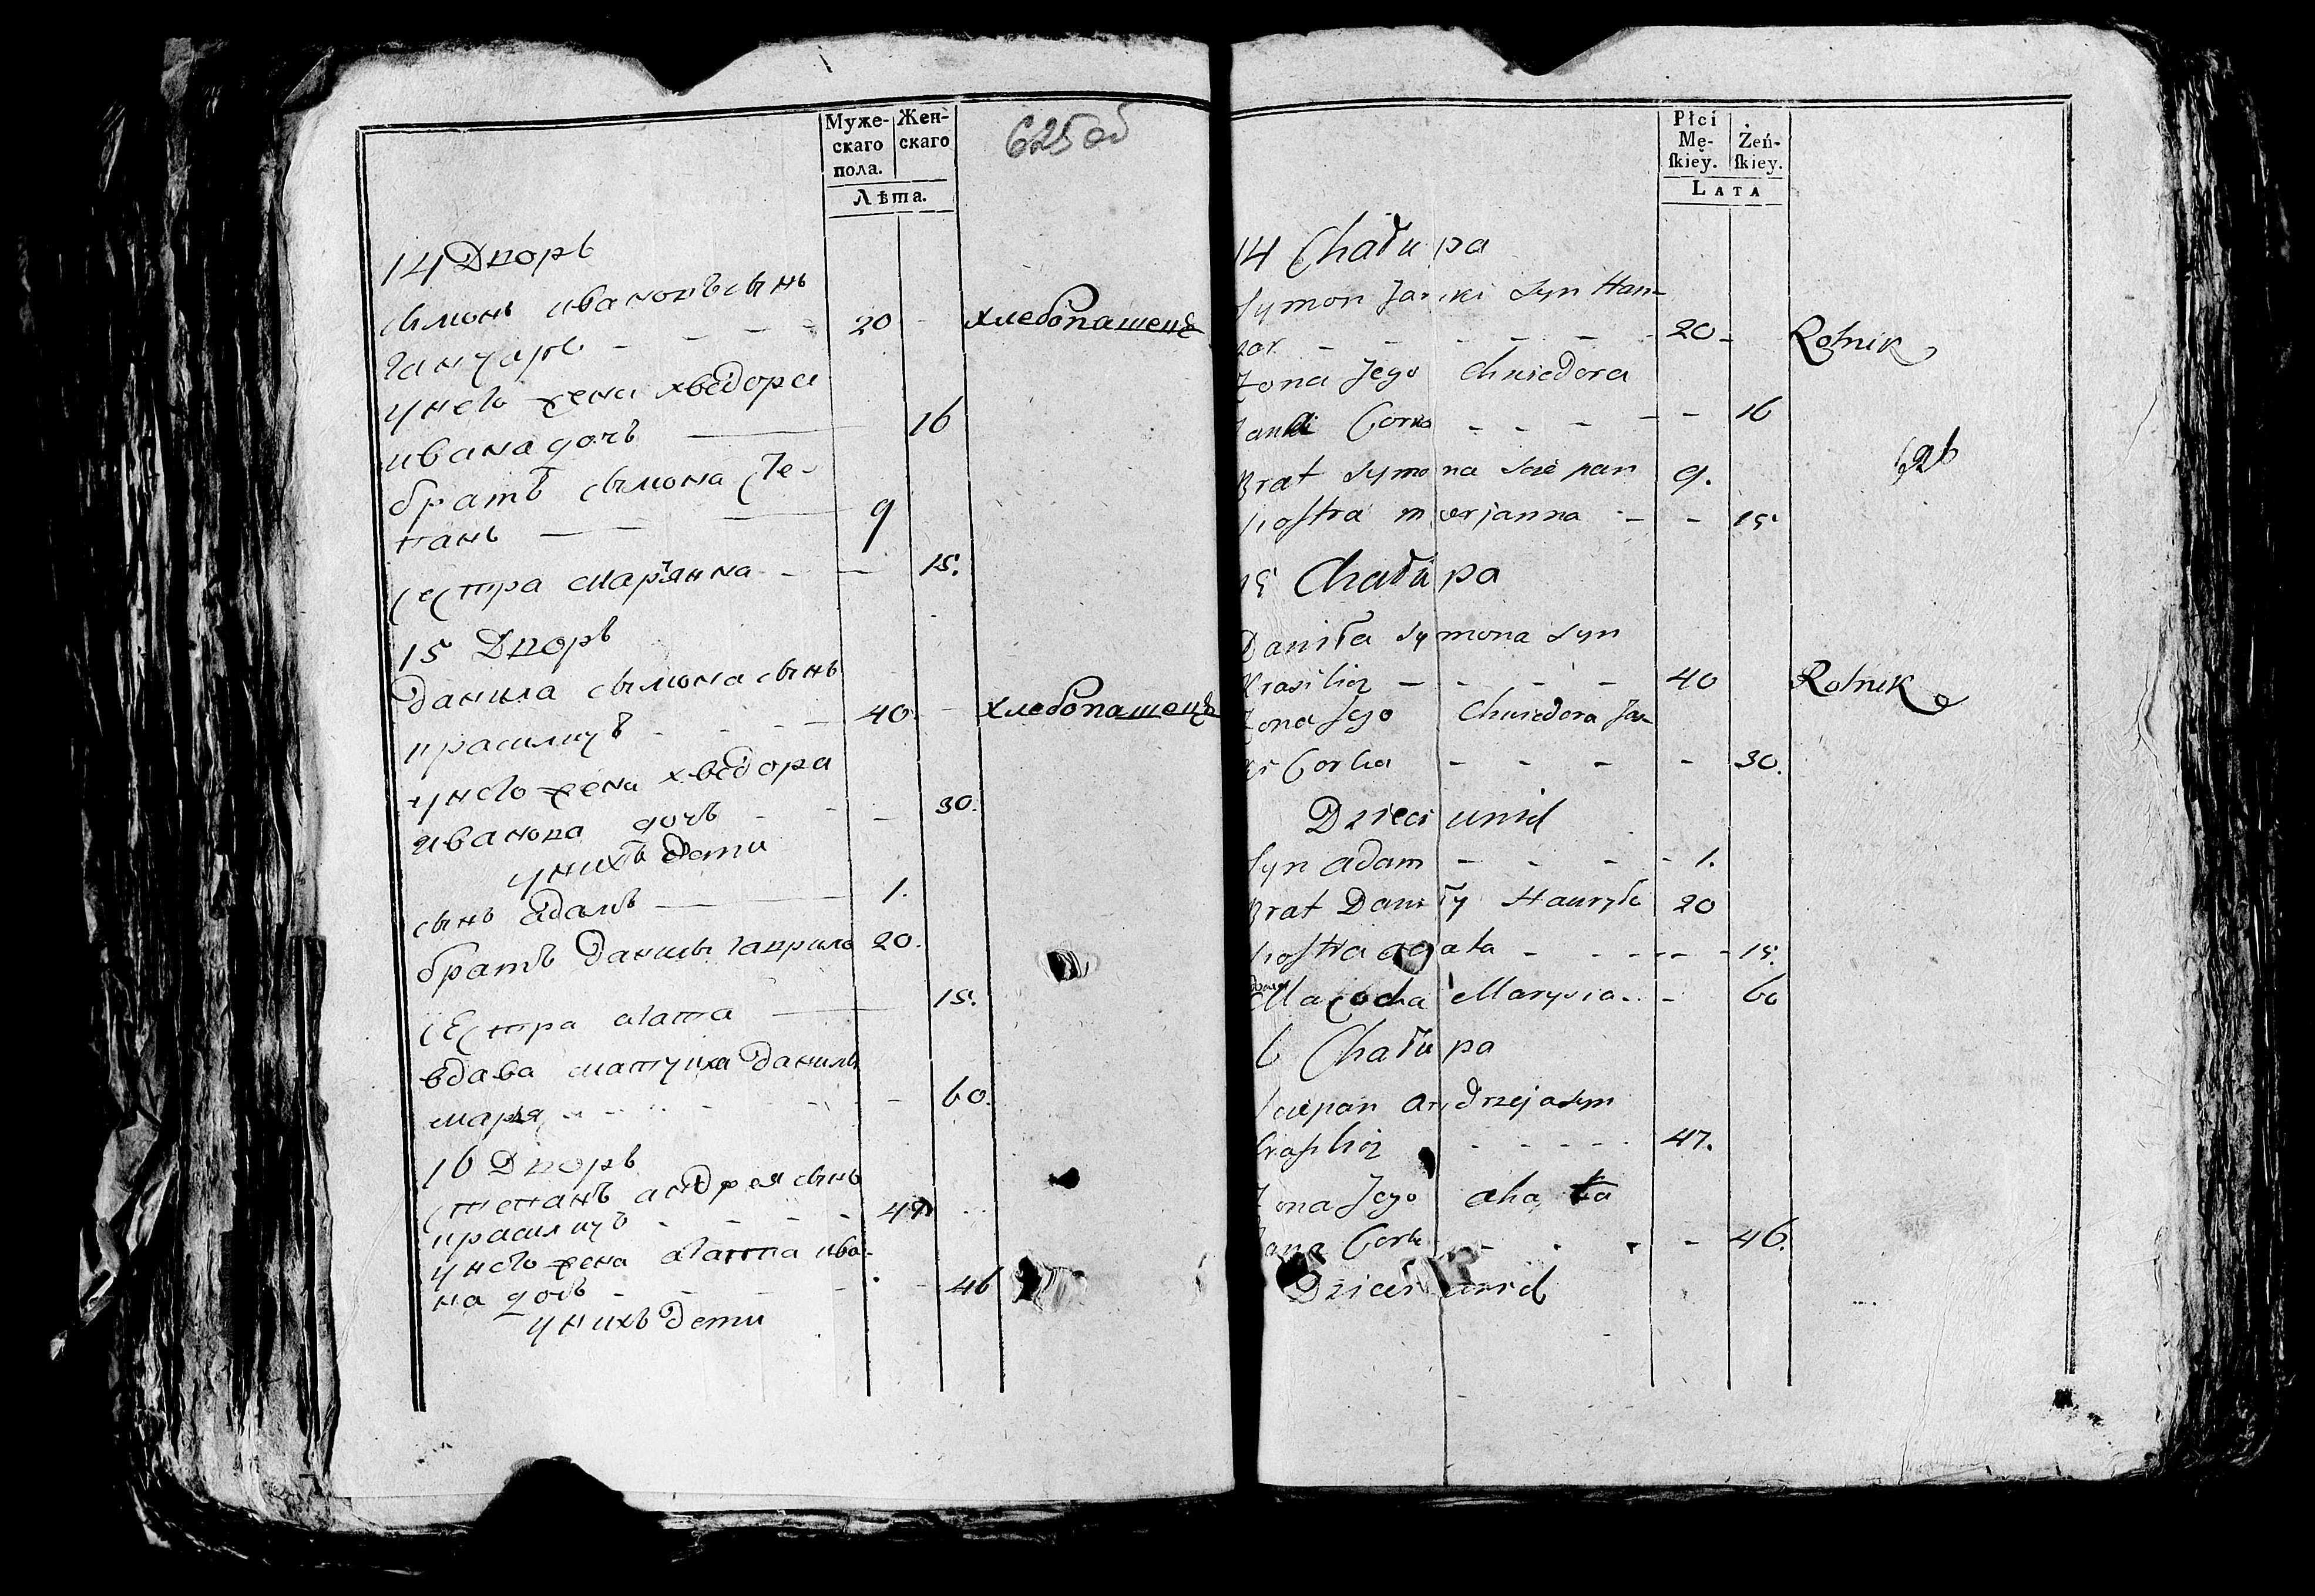 Муже-
скаго
пола.
Жен-
скаго
Лѣта.
625 об
14 Дворъ
Сымонъ ивановъ сынъ
ганчаръ - - - 20 - хлебопашецъ
унего жена хведора
ивана дочъ 16
братъ сымона Сте-
панъ 9
Сестра марьянна - 15.
15 Дворъ
Данила сымона сынъ
красилицъ - - 40 - хлебопашецъ
унего жена хведора
иванова дочъ - - 30.
унихъ дети
сынъ адамъ 1.
братъ Данилы гаврило 20.
Сестра агата 15.
вдава матушка Данилы
марья - - - 60.
16 Дворъ
Степанъ андрея сынъ
красилицъ - - - 47
унего жена агатта ива-
на дочъ - - - 46
унихъ дети
Płci
Mę-
ſkiey.
Żeń-
ſkiey.
Lata
14 Chałupa
Symon Janki Syn Han-
zar. - - - - - 20 - Rolnik
Zona Jego Chwiedora
Janki Corka - - - - - 16
Brat Symona Sciepan 9.
Siostra marjanna - - 15
15 Chałupa
Daniła Symona Syn
Krasilicz - - - - 40 Rolnik
Zona Jego Chwiedora Jan-
ki Corka - - - - 30.
Dzieci unich
Syn adam - - - - 1.
Brat Daniły Hauryło 20
Siostra agata - - - - - 15.
Macocha Marysia - - 60
6 Chałupa
Sciepan andrzeja Syn
Krasilicz - - - - - 47.
Zona Jego aha ta
Jana Corka - - - - 46.
Dzieci unich